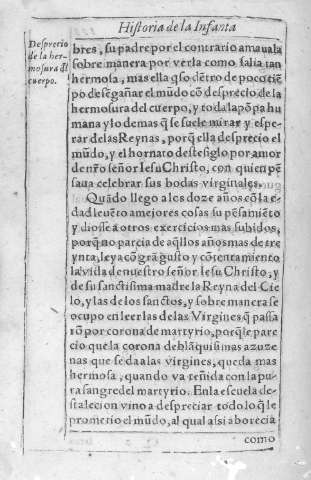 Historia de la Infanta
Desprecio
de la her-
mosura đl
cuerpo.
bres, su padre por el contrario amauala
sobre manera por verla como salia tan
hermosa, mas ella q̃ dẽtro de poco tiẽ
po desẽgañar el mũdo cõ desprecio de la
hermosura del cuerpo, y toda la põpa hu
mana y lo demas q̃ se suele mirar y espe-
rar de las Reynas, porq̃ ella desprecio el
mũdo, y el hornato deste siglo por amor
de nr̃o señor Iesu Christo, con quien pẽ
saua celebrar sus bodas virginales.
Quãdo llego a los doze años cõ la e-
dad leuẽto a mejores cosas su pẽsamiẽto
y diosse a otros exercicios mas subidos,
porq̃ no parcia de aq̃llos años mas de tre
ynta, leya cõ grã gusto y cõtentamiento
la vida de nuestro señor Iesu Christo, y
de su sanctissima madre la Reyna del Cie
lo, y las de los sanctos, y sobre manera se
ocupo en leer las de las Virgines q̃ passa
rõ por corona de martyrio, porq̃ le pare
cio que la corona de blãquisimas azuze
nas que se da a las virgines, queda mas
hermosa, quando va teñida con la pu-
ra sangre del martyrio. En la escuela de-
sta lecion vino a despreciar todo lo q̃ le
prometio el mũdo, al qual assi aborecia
como